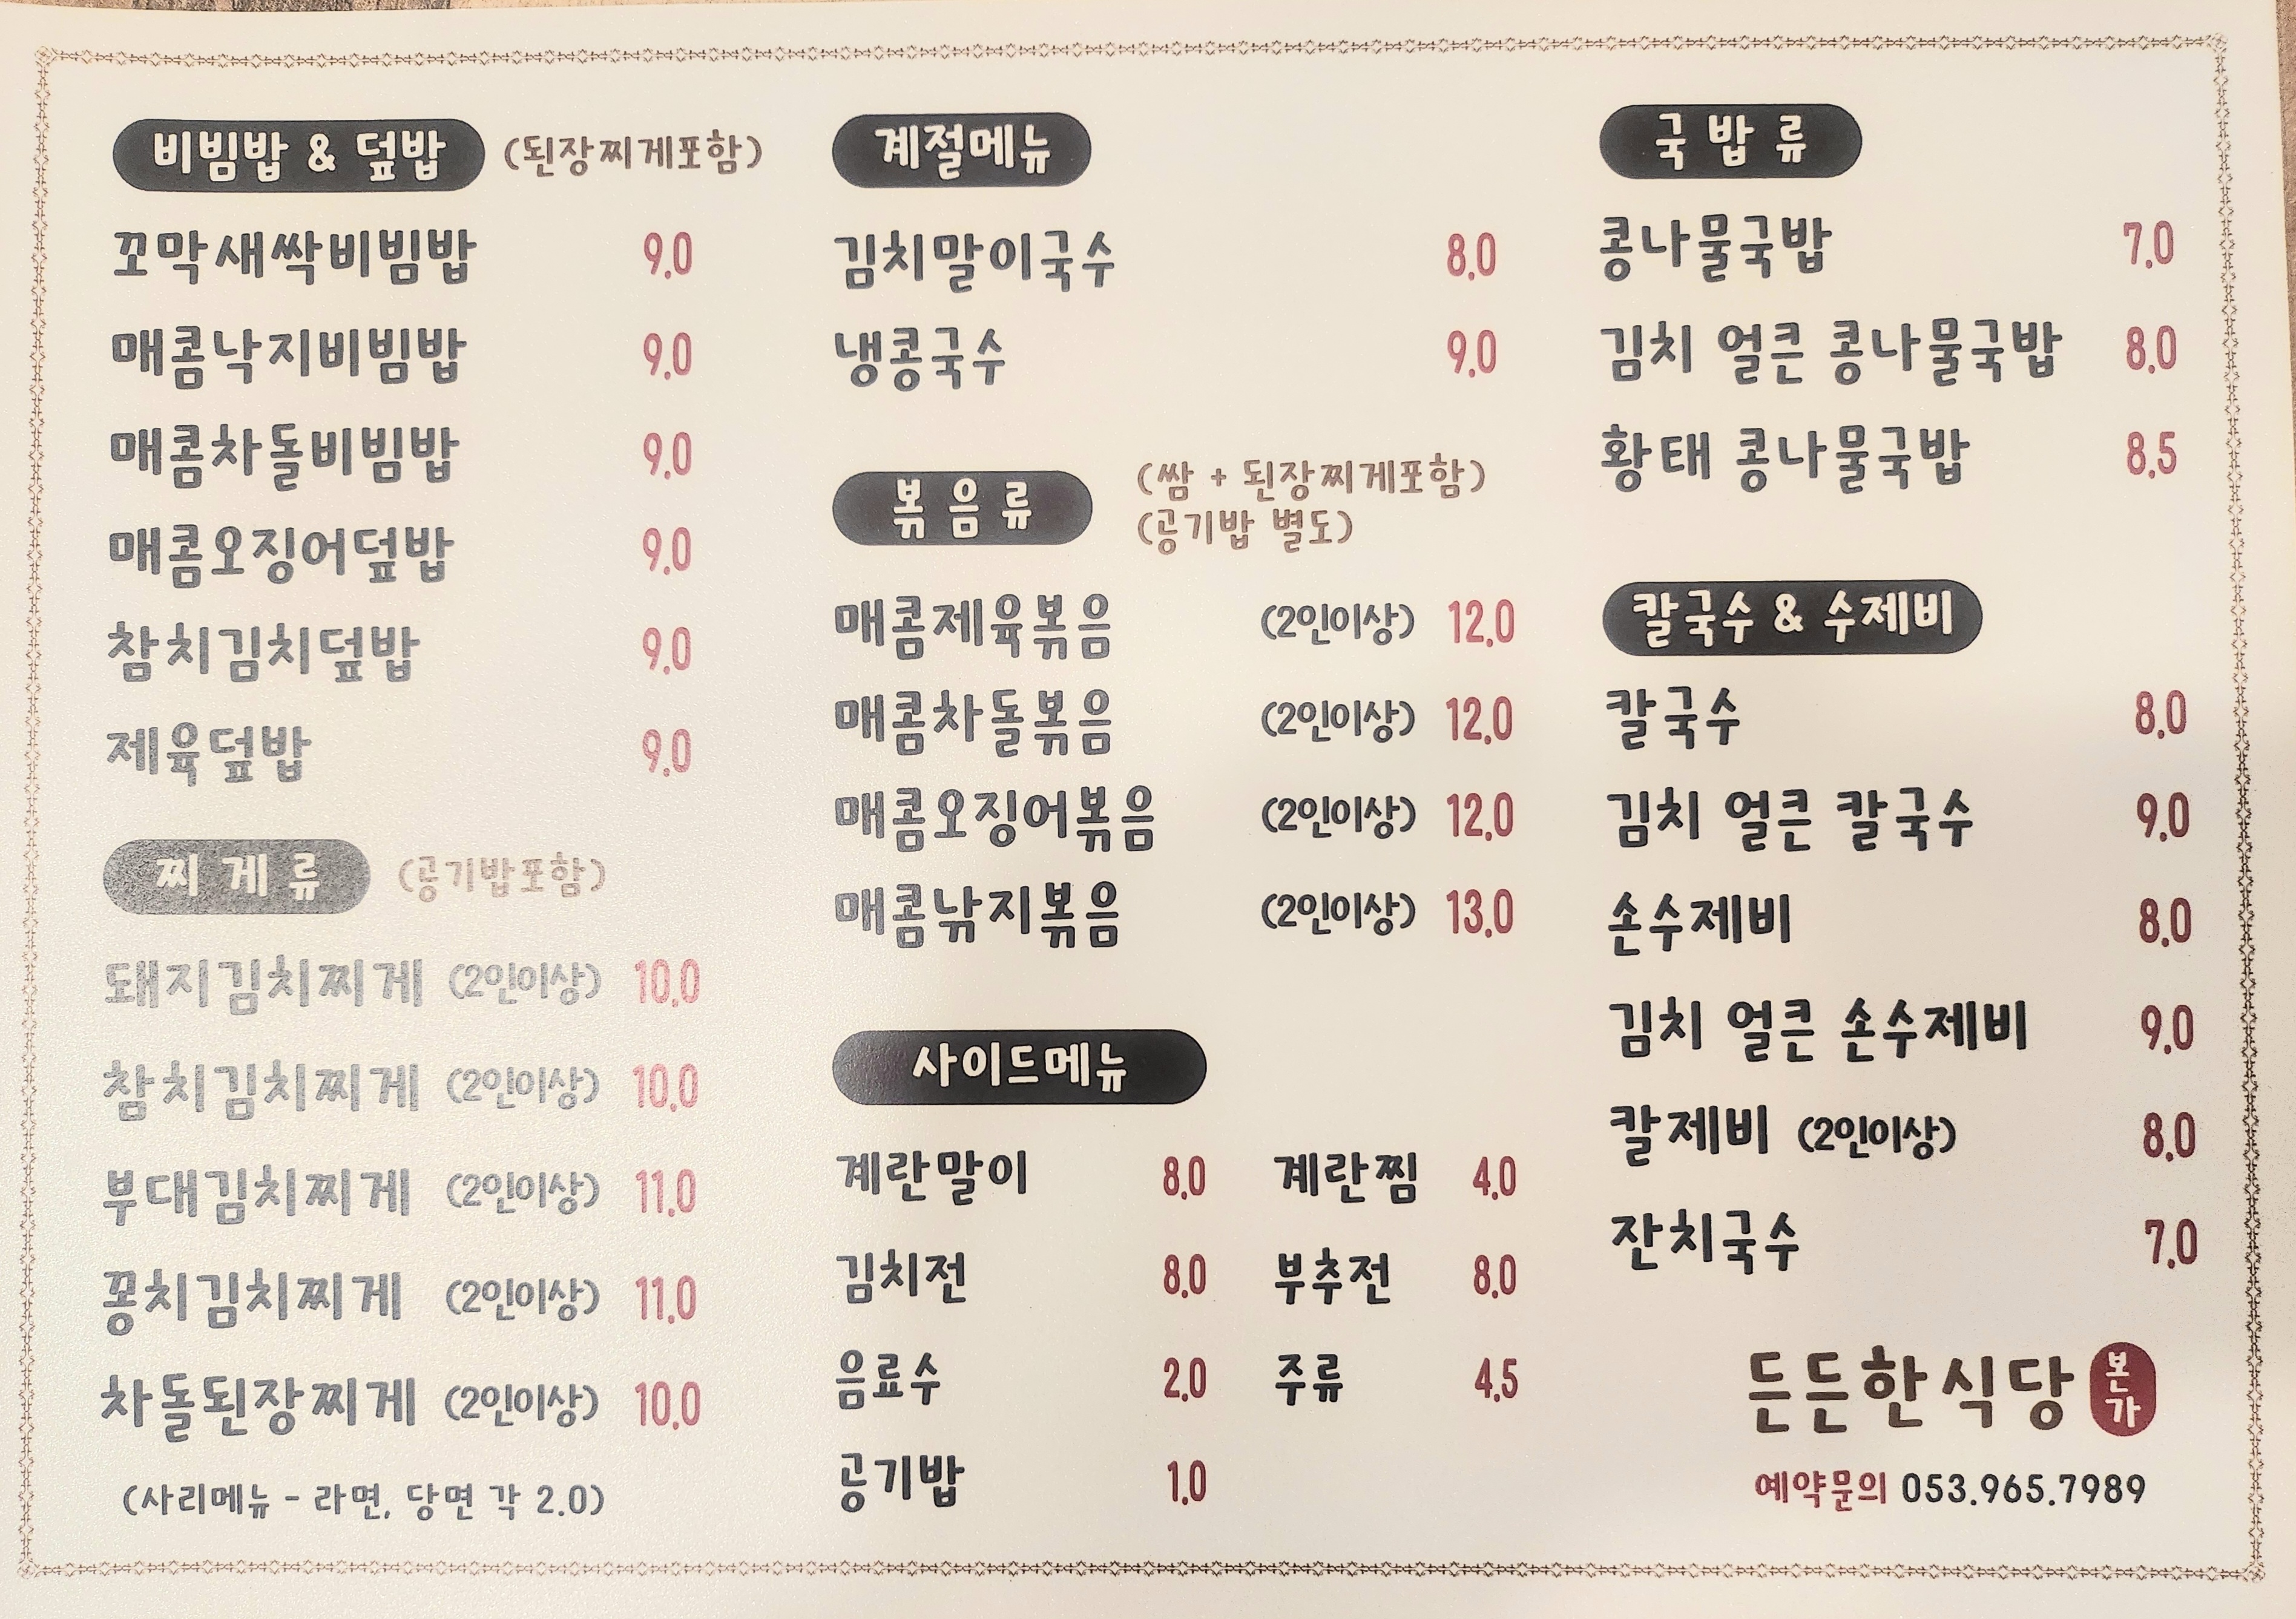 비빔밥 & 덮밥 (된장찌게포함)
꼬막새싹비빔밥 9.0
매콤낙지비빔밥 9.0
매콤차돌비빔밥 9.0
매콤오징어덮밥 9.0
참치김치덮밥 9.0
제육덮밥 9.0
찌게류 (공기밥포함)
돼지김치찌게 (2인이상) 10.0
참치김치찌게 (2인이상) 10.0
부대김치찌게 (2인이상) 11.0
꽁치김치찌게 (2인이상) 11.0
차돌된장찌게 (2인이상) 10.0
(사리메뉴 - 라면, 당면 각 2.0)
계절메뉴
김치말이국수 8.0
냉콩국수 9.0
볶음류
(쌈 + 된장찌게포함)
(공기밥 별도)
매콤제육볶음 (2인이상) 12.0
매콤차돌볶음 (2인이상) 12.0
매콤오징어볶음 (2인이상) 12.0
매콤낚지볶음 (2인이상) 13.0
사이드메뉴
계란말이 8.0 계란찜 4.0
김치전 8.0 부추전 8.0
음료수 2.0 주류 4.5
공기밥 1.0
국밥류
콩나물국밥 7.0
김치 얼큰 콩나물국밥 8.0
황태 콩나물국밥 8.5
칼국수 & 수제비
칼국수 8.0
김치 얼큰 칼국수 9.0
손수제비 8.0
김치 얼큰 손수제비 9.0
칼제비 (2인이상) 8.0
잔치국수 7.0
든든한식당 본가
예약문의 053.965.7989